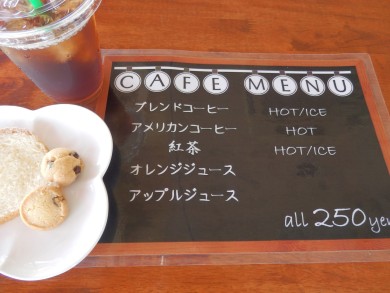 CAFE MENU
ブレンドコーヒー HOT/ICE
アメリカンコーヒー HOT
紅茶 HOT/ICE
オレンジジュース
アップルジュース
all 250 yen